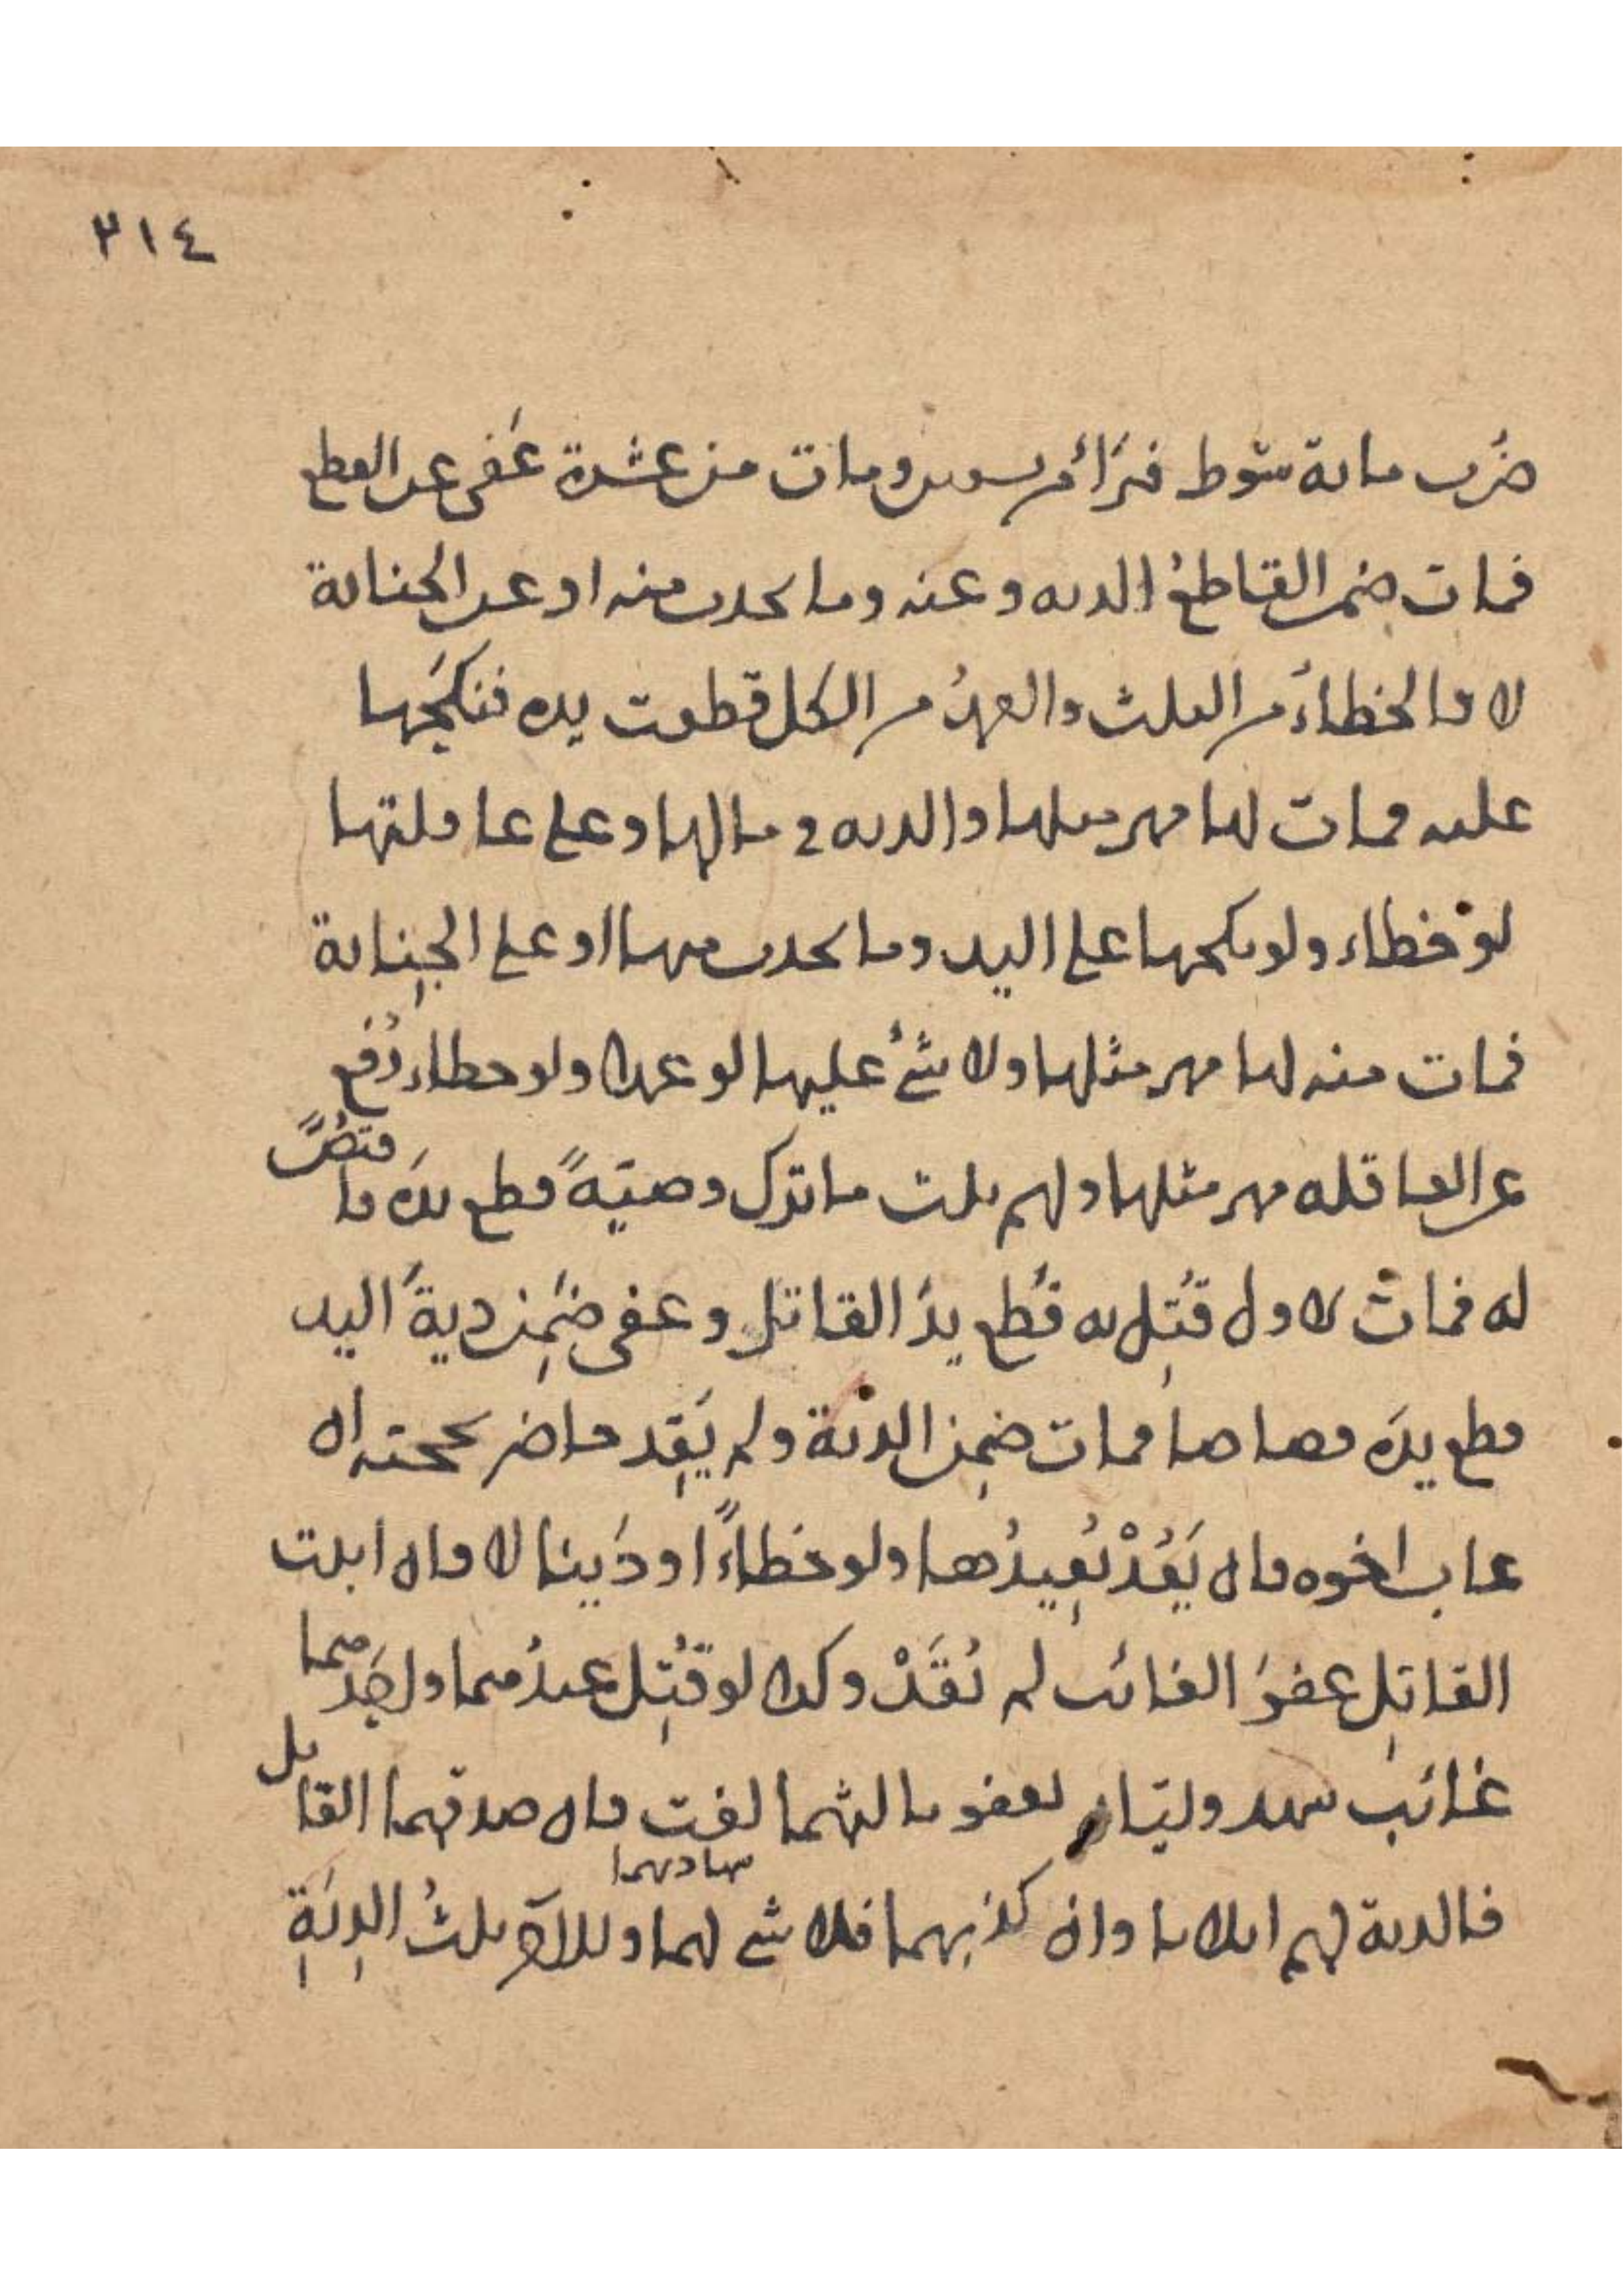 ٣١٤
ضرب مائة سوط فبرأ من تسعين ومات من عشرة عفى عن القطع
فمات ضمن القاطع الدية وعنه وما يحدث منه او عن الجناية
لا فالخطاء من الثلث والعمد من الكل قطعت يده فنكحها
عليه فمات لها مهر مثلها والدية في مالها وعلى عاقلتها
لو خطاء ولو نكحها على اليد وما يحدث منها او على الجناية
فمات منه لها مهر مثلها ولا شئ عليها لو عمدا ولو خطاء رفع
عن العاقلة مهر مثلها ولهم ثلث ما ترك وصية قطع يده فاقتص
له فمات الاول قتل به قطع يد القاتل وعفى ضمن دية اليد
قطع يده قصاصا فمات ضمن الدية ولم يقد حاضر بحجته اذ
غاب اخوه فان يعد يعيدها ولو خطاء او دينا لا فان اثبت
القاتل عفو الغائب لم يقد وكذا لو قتل عبدهما واحدهما
غائب شهد وليان بعفو ثالثهما لغت فان صدقهما القاتل
فالدية لهم اثلاثا وان كذبهما فلا شئ لهما وللآخر ثلث الدية
شهادتهما